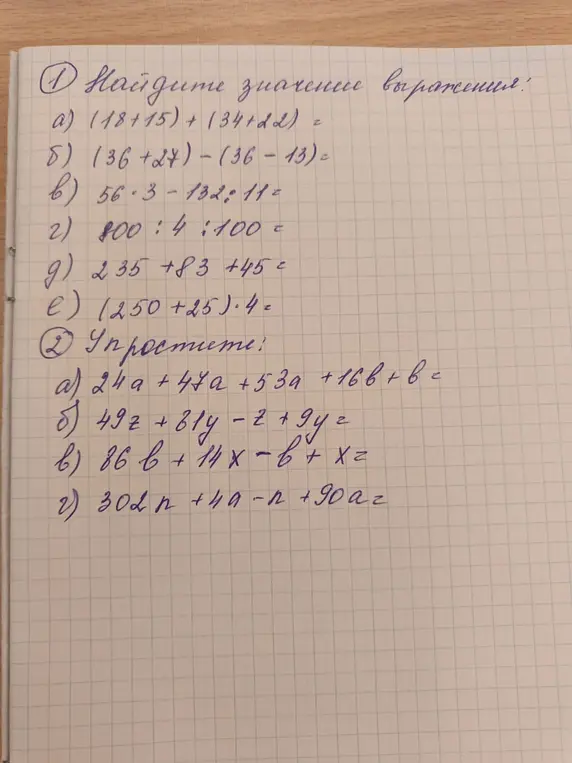 1 Найдите значение выражения:
а) (18+15) + (34+22) =
б) (36 + 27) - (36 - 13)=
в) 56 · 3 - 132 : 11 =
г) 800 : 4 : 100 =
д) 235 + 83 + 45 =
е) (250 + 25) · 4 =
2 Упростите:
а) 24a + 47a + 53a + 16b + b =
б) 49z + 31y - z + 9y =
в) 86b + 14x - b + x =
г) 302n + 4a - n + 90a =